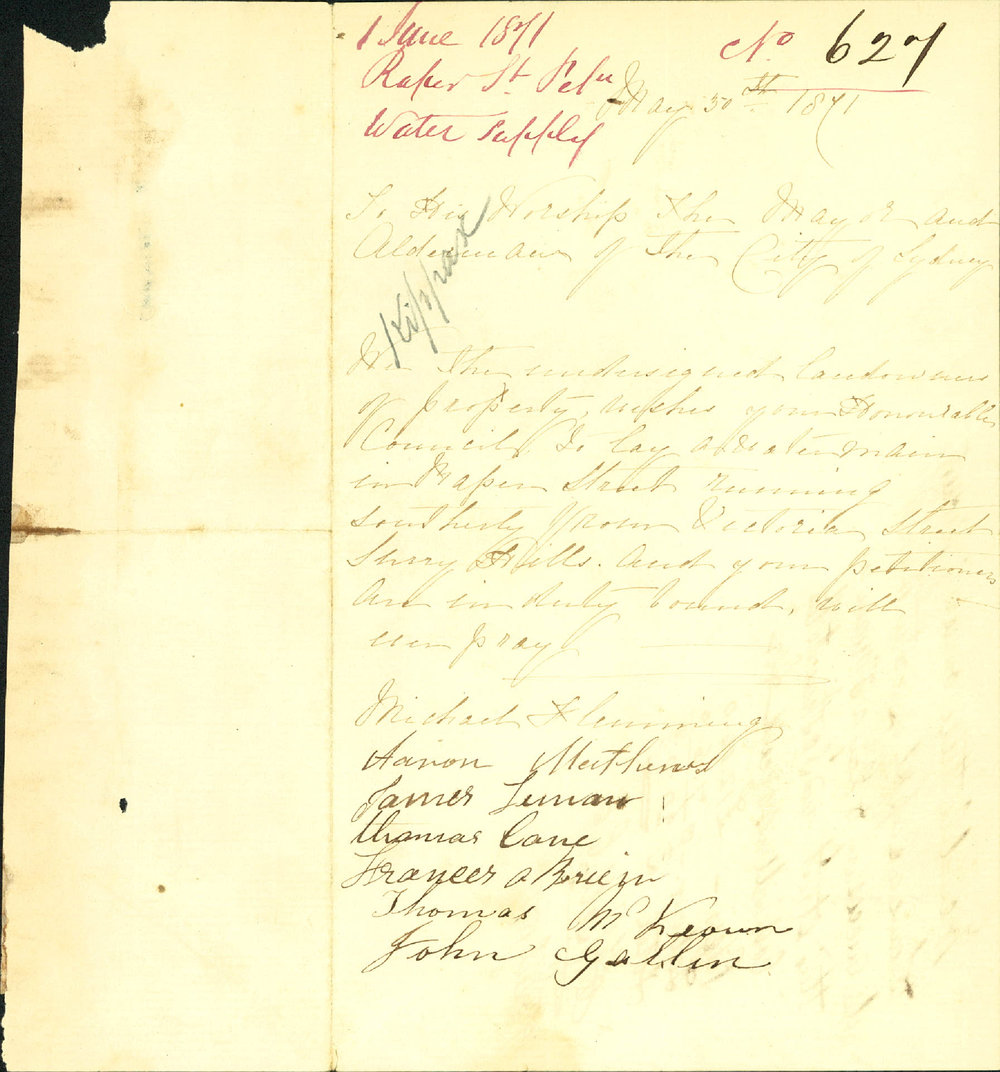 1 June 1871
No 627
Raper St Petn
May 30th 1871
Water supply
To His Worship The Mayor and
Alderman of The City of Sydney
Kippax
We The undersigned landowners
of property, wishes your Honourable
Council To lay a Water main
in Raper Street running
southerly from Victoria Street
Surry Hills. And your petitioners
As in duty bound, will
ever pray
Michael Flemming
Aaron Mathews
James
Thomas Cane
Frances O Brien
Thomas McKeown
John Gallin